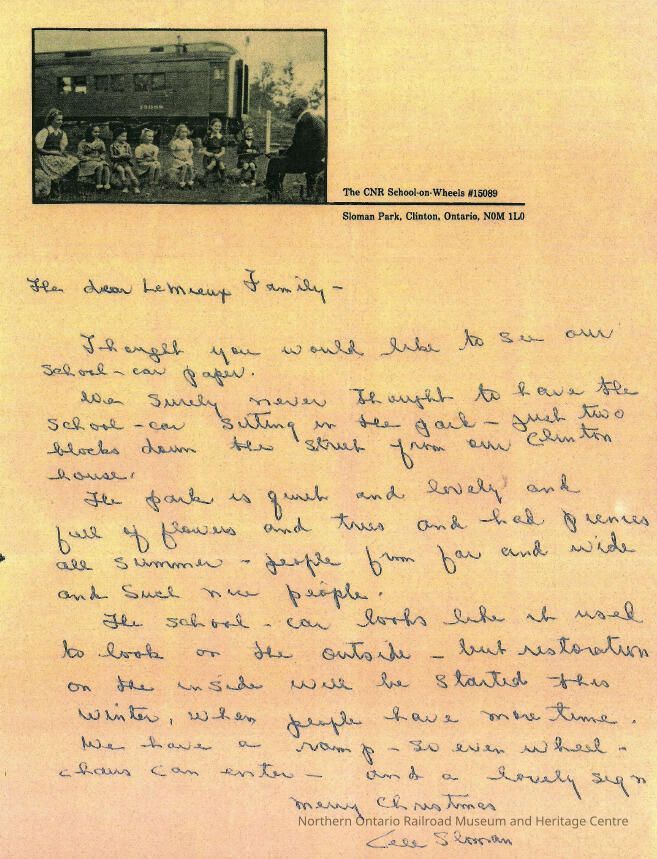 15089
The CNR School-on-Wheels #15089
Sloman Park, Clinton, Ontario, N0M 1L0
The dear LeMieux Family -
Thought you would like to see our
school-car paper.
We surely never thought to have the
school-car sitting in the park - just two
blocks down the street from our Clinton
house.
The park is quiet and lovely and
full of flowers and trees and had picnics
all summer - people from far and wide
and such nice people.
The school-car looks like it used
to look on the outside - but restoration
on the inside will be started this
winter, when people have more time.
We have a ramp - so even wheel-
chairs can enter - and a lovely sign
Merry Christmas
Northern Ontario Railroad Museum and Heritage Centre
Cela Sloman